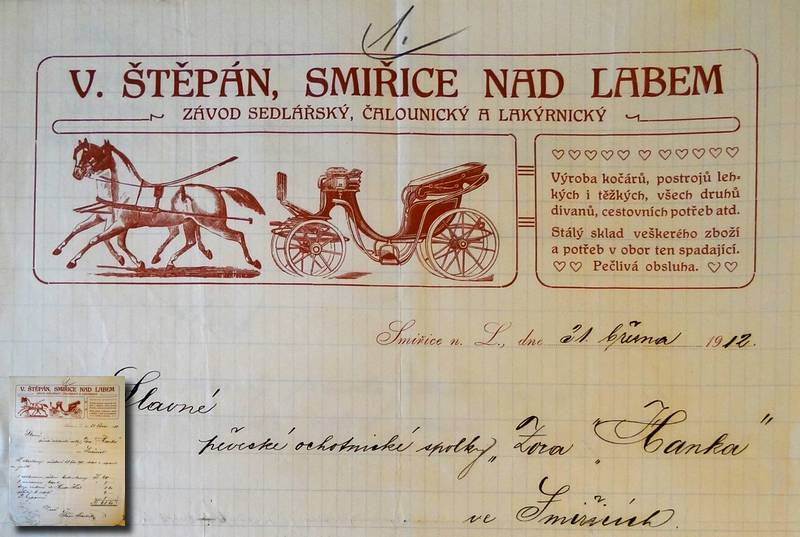 1.
V. ŠTĚPÁN, SMIŘICE NAD LABEM
ZÁVOD SEDLÁŘSKÝ, ČALOUNICKÝ A LAKÝRNICKÝ
Výroba kočárů, postrojů leh-
kých i těžkých, všech druhů
divanů, cestovních potřeb atd.
Stálý sklad veškerého zboží
a potřeb v obor ten spadající.
Pečlivá obsluha.
Smiřice n. L., dne 31. března 1912.
Slavné
pěvecké ochotnické spolky „Zora „Hanka"
ve Smiřicích.
V. ŠTĚPÁN, SMIŘICE NAD LABEM